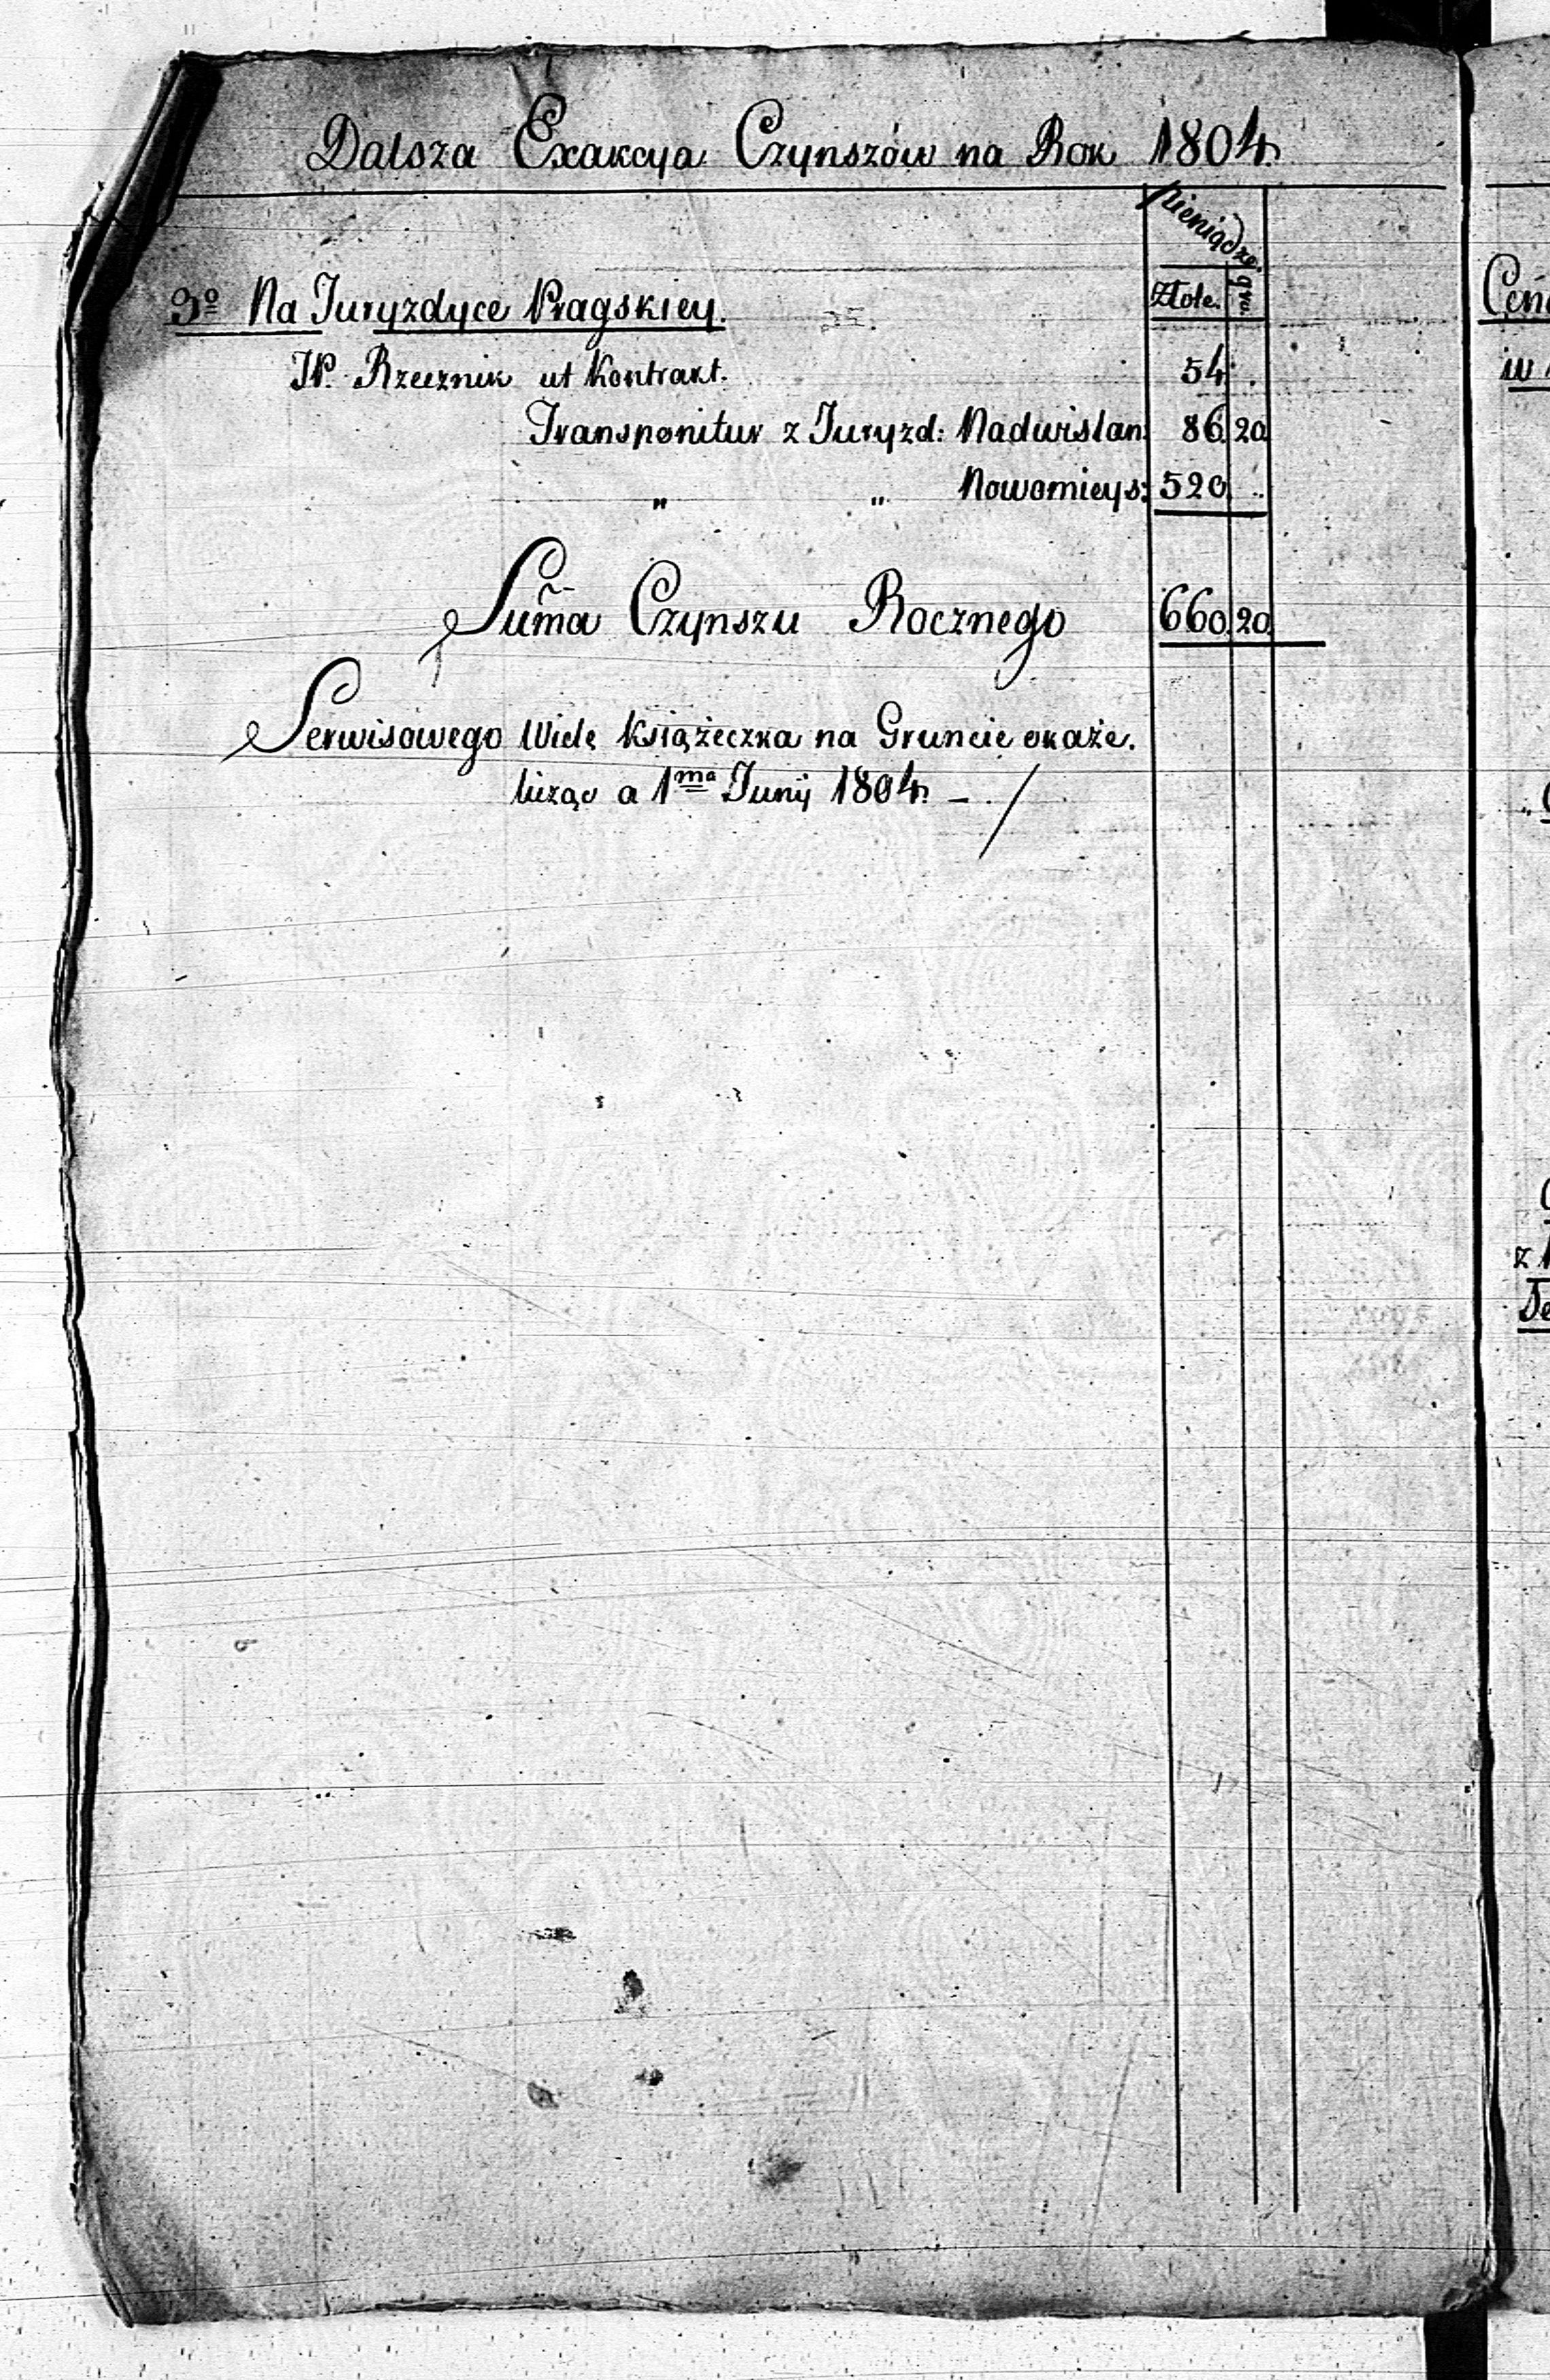 Dalsza Exakcya Czynszów na Rok 1804.
Pieniądze.
Złote. gro.
3º Na Juryzdyce Pragskiey.
JP. Rzecznik ut Kontrakt. 54 .
Transponitur z Juryzd: Nadwislan: 86 20
„ „ Nowomieys: 520 ..
Sum̃a Czynszu Rocznego 660 20
Serwisowego Wiele książeczka na Gruncie okaże.
licząc a 1ma Junij 1804. –